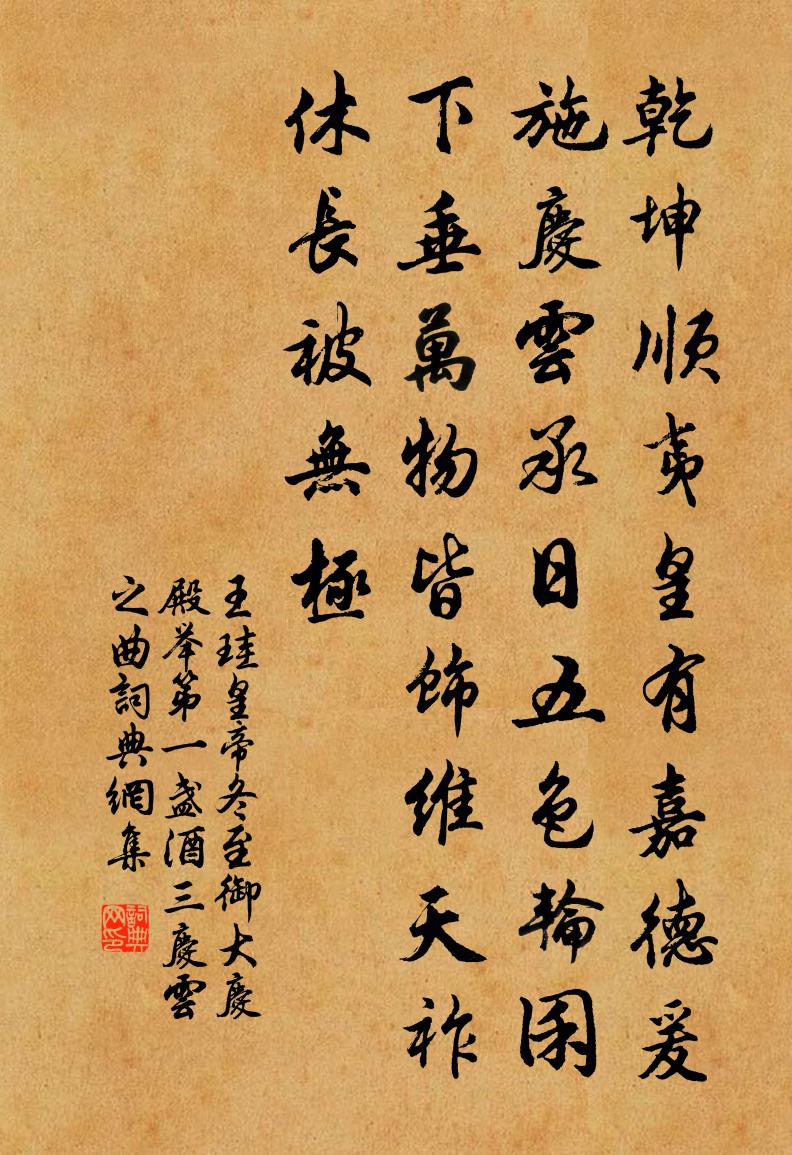 乾坤順夷皇有嘉德爰
施慶雲承日五色輪囷
下垂萬物皆飾維天祚
休長被無極
王珪皇帝冬至御大慶
殿举第一盏酒三慶雲
之曲詞典網集
詞典
网印